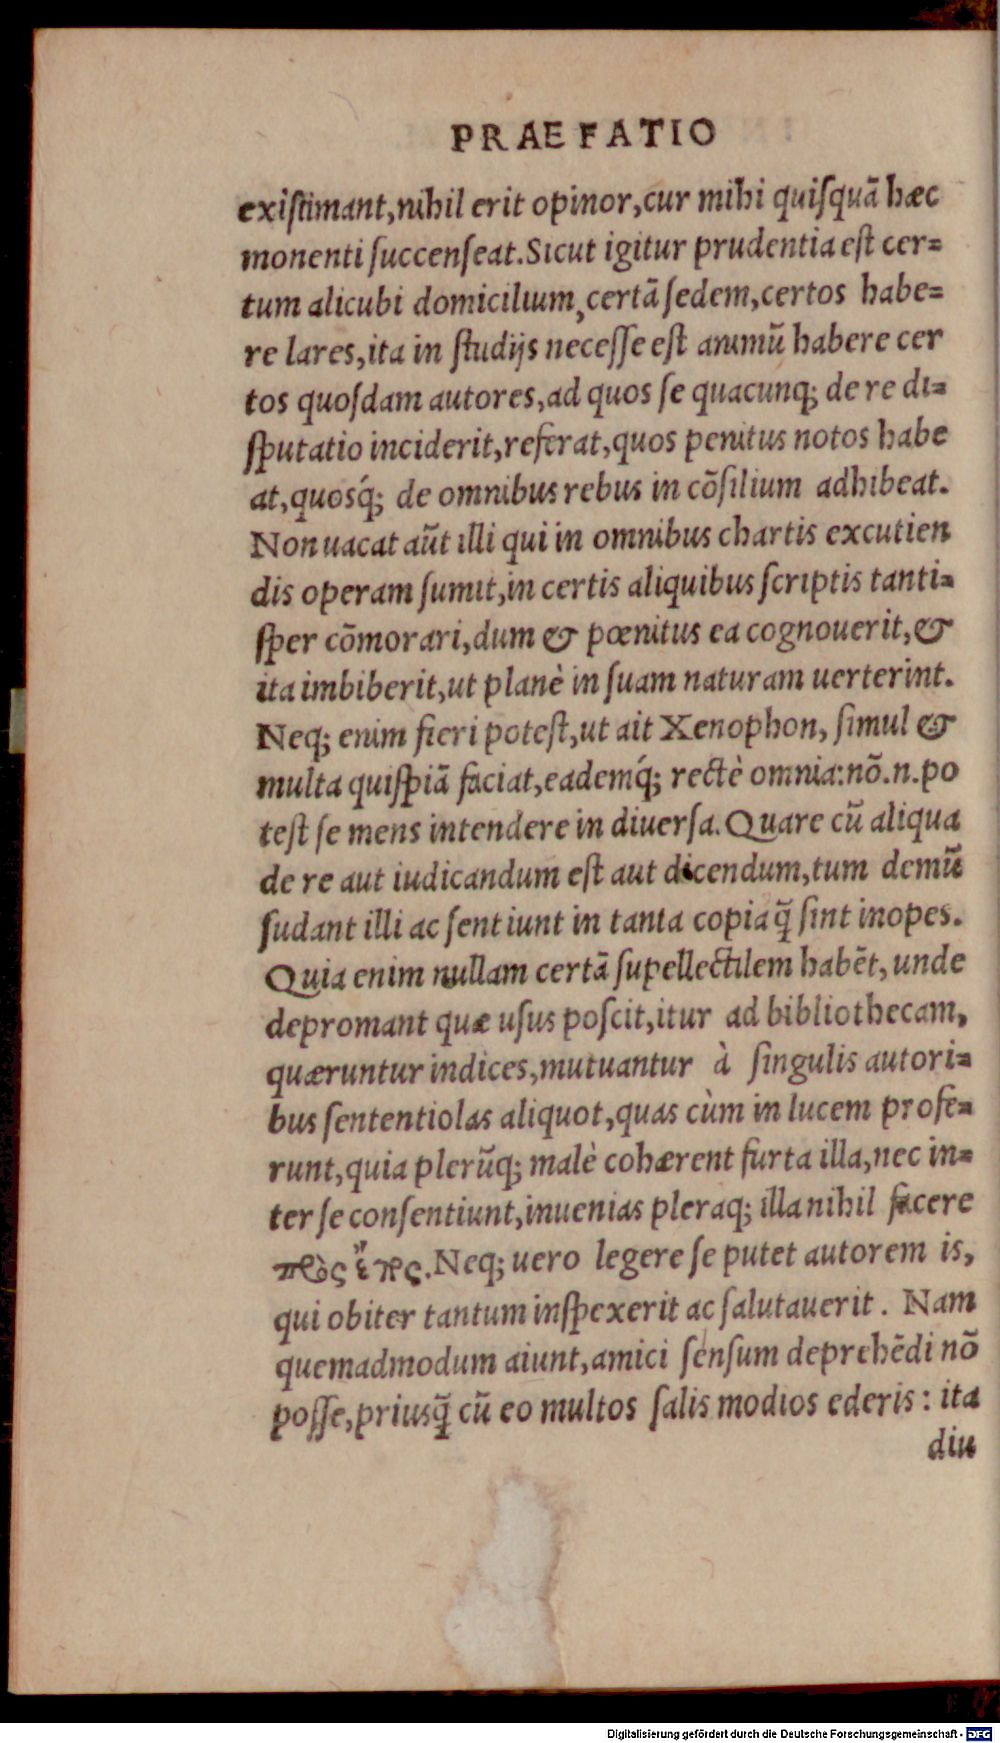 PRAEFATIO
exiſtimant,nihil erit opinor,cur mihi quiſquā hæc
monenti ſuccenſeat.Sicut igitur prudentia eſt cer=
tum alicubi domicilium,certā ſedem,certos habe=
re lares,ita in ſtudijs neceſſe eſt animū habere cer
tos quoſdam autores,ad quos ſe quacunq; de re di=
ſputatio inciderit,referat,quos penitus notos habe
at,quosq́; de omnibus rebus in cōſilium adhibeat.
Non uacat aūt illi qui in omnibus chartis excutien
dis operam ſumit,in certis aliquibus ſcriptis tanti=
ſper cōmorari,dum & pœnitus ea cognouerit,&
ita imbiberit,ut planè in ſuam naturam uerterint.
Neq; enim fieri poteſt,ut ait Xenophon, ſimul &
multa quiſpiā faciat,eademq́; rectè omnia:nō.n.po
teſt ſe mens intendere in diuerſa.Quare cū aliqua
de re aut iudicandum eſt aut dicendum,tum demū
ſudant illi ac ſentiunt in tanta copia q̄ ſint inopes.
Quia enim nullam certā ſupellectilem habēt, unde
depromant quæ uſus poſcit,itur ad bibliothecam,
quæruntur indices,mutuantur à ſingulis autori=
bus ſententiolas aliquot,quas cùm in lucem profe=
runt,quia plerūq; malè cohærent furta illa,nec in=
ter ſe conſentiunt,inuenias pleraq; illa nihil facere
πρὸς ἔπος.Neq; uero legere ſe putet autorem is,
qui obiter tantum inſpexerit ac ſalutauerit. Nam
quemadmodum aiunt,amici ſenſum deprehēdi nō
poſſe,priusq̄ cū eo multos ſalis modios ederis: ita
diu
Digitalisierung gefördert durch die Deutsche Forschungsgemeinschaft - DFG